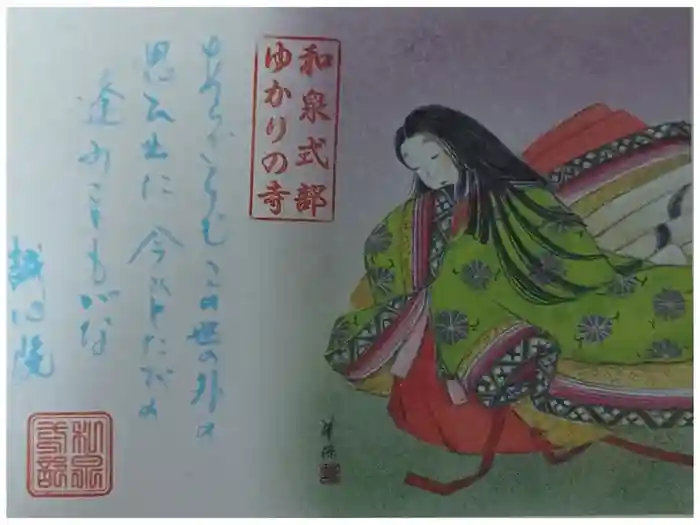 和泉式部
ゆかりの寺
あらざらむこの世の外の
思ひ出に今ひとたびの
逢ふこともがな
誠心院
和泉
式部